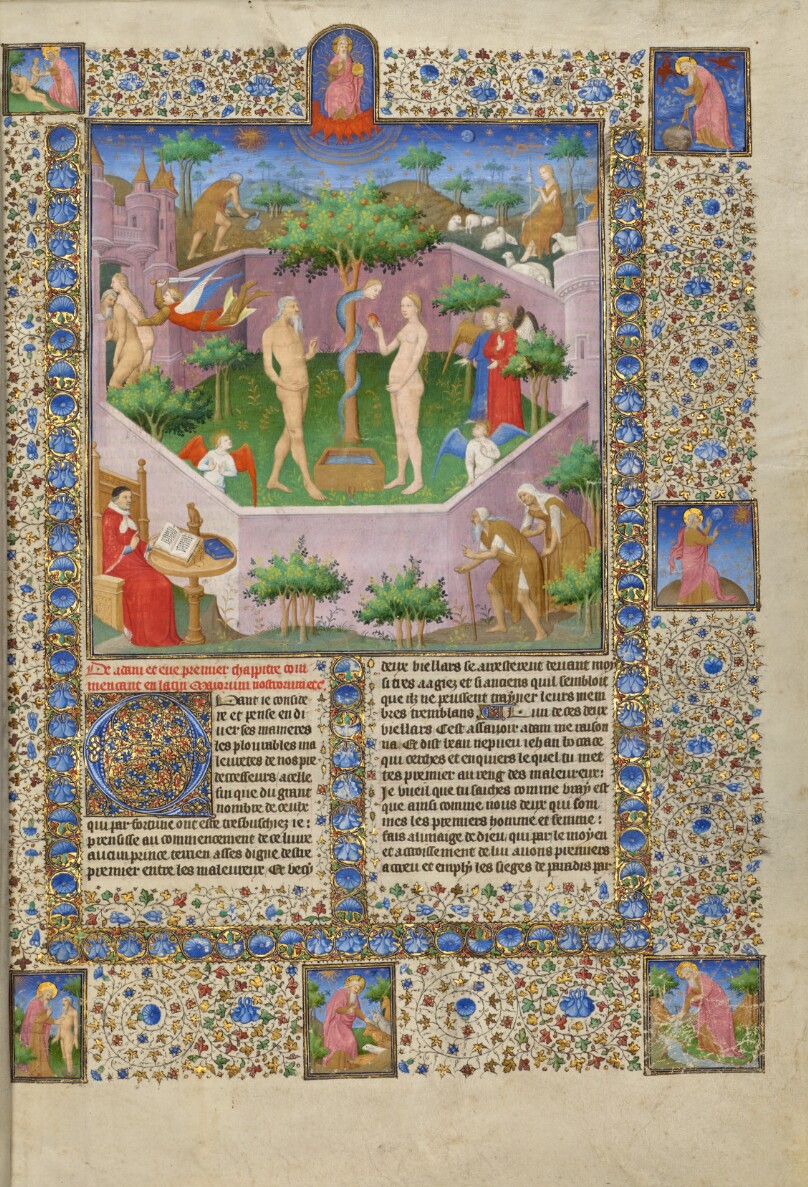 De adam et eue premier chappitre com
mencant en latin Maiorum nostrorum etc
Quant ie conside
re et pense en di
uerses manieres
les plourables ma
leuretes de nos pre
decesseurs acelle
fin que du grant
nombre de ceulx
qui par fortune ont este tresbuschiez ie
prensisse au commencement de ce liure
aucun prince terrien asses digne destre
premier entre les maleureux Et vecy
deux viellars se aresterent deuant moy
si tres aagiez et si anciens quil sembloit
que ilz ne peussent trayner leurs mem
bres tremblans Lun de ces deux
viellars Cest assauoir adam me raison
na Et dist beau nepueu iehan bocace
qui cerches et enquiers le quel tu met
tes premier au reng des maleureux:
Je vueil que tu saiches comme vray est
que ainsi comme nous deux qui som
mes les premiers homme et femme:
fais a limaige de dieu qui par le moyen
et accroissement de lui auons premiers
accreu et emply les sieges de paradis par